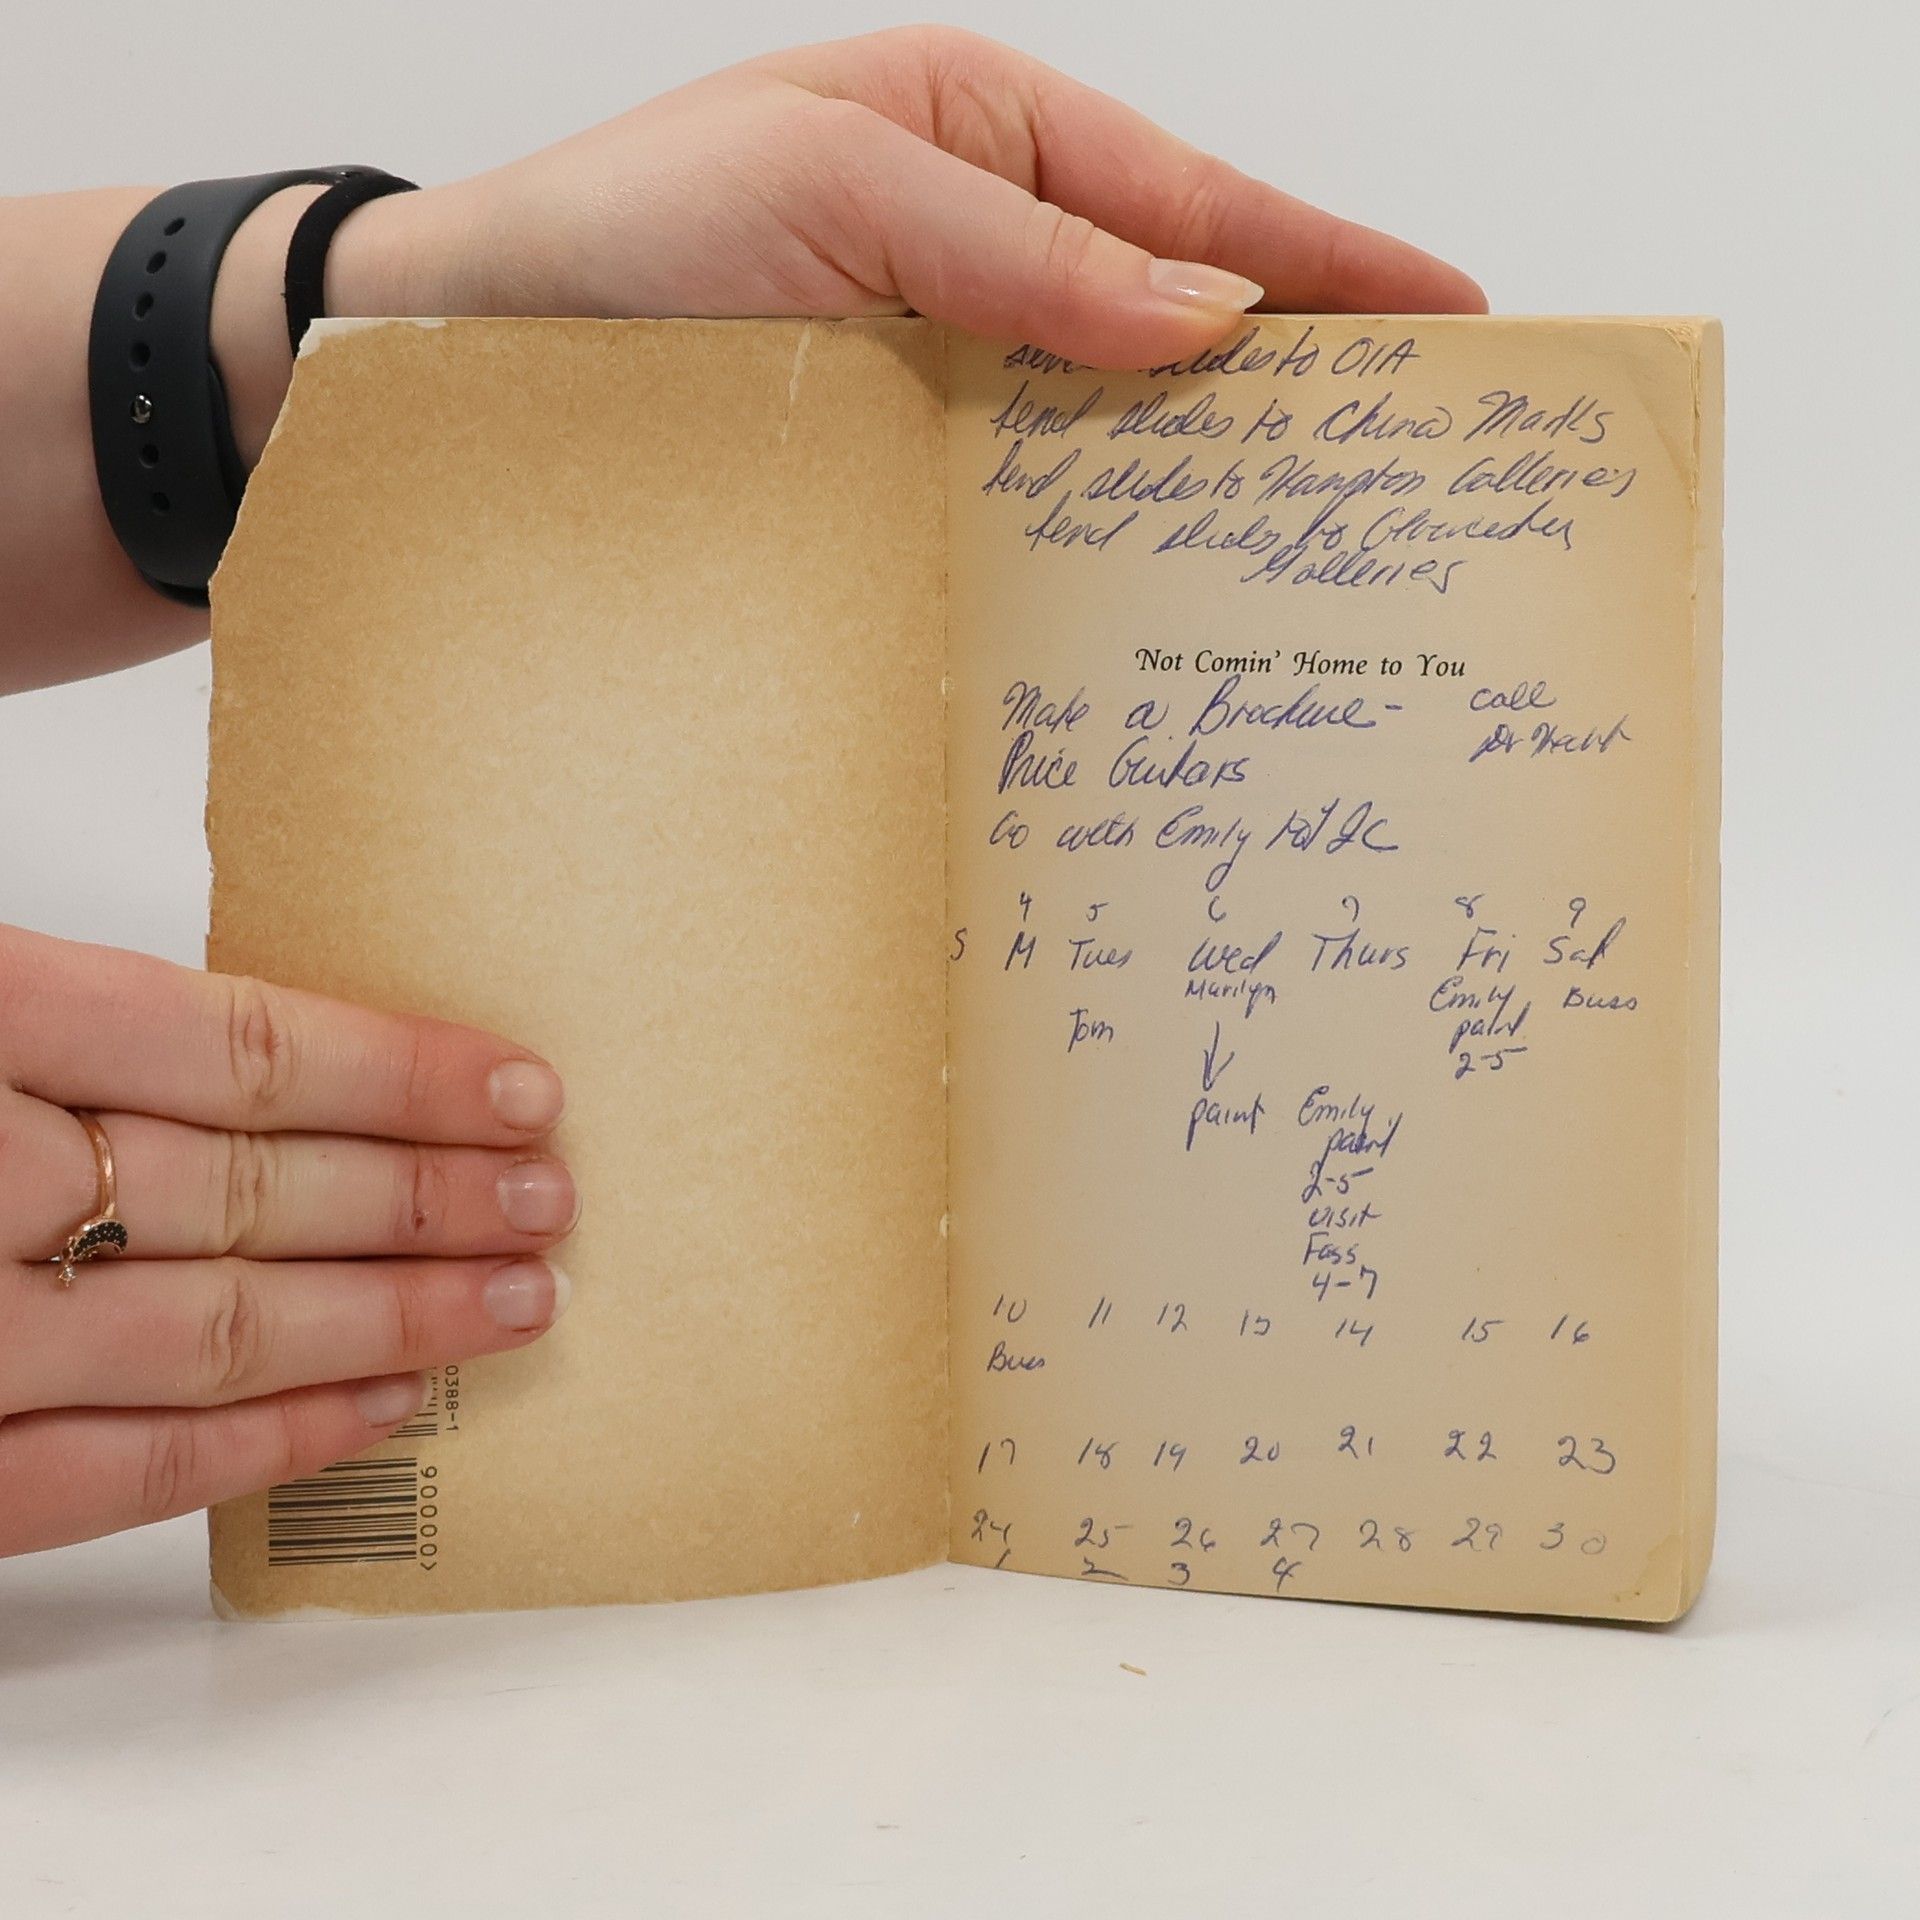 slides to OIA
send slides to China Marks
send slides to Hampton Galleries
send slides to Gloucester
Galleries
Not Comin' Home to You
Make a Brochure - call
Dr
Price Guitars
Go with Emily to
4 5 6 7 8 9
S M Tues Wed Thurs Fri Sat
Marilyn Emily Buss
Tom paint
2-5
paint Emily
paint
2-5
visit
Foss
4-7
10 11 12 13 14 15 16
Buss
17 18 19 20 21 22 23
24 25 26 27 28 29 30
1 2 3 4
0388-1
90000>